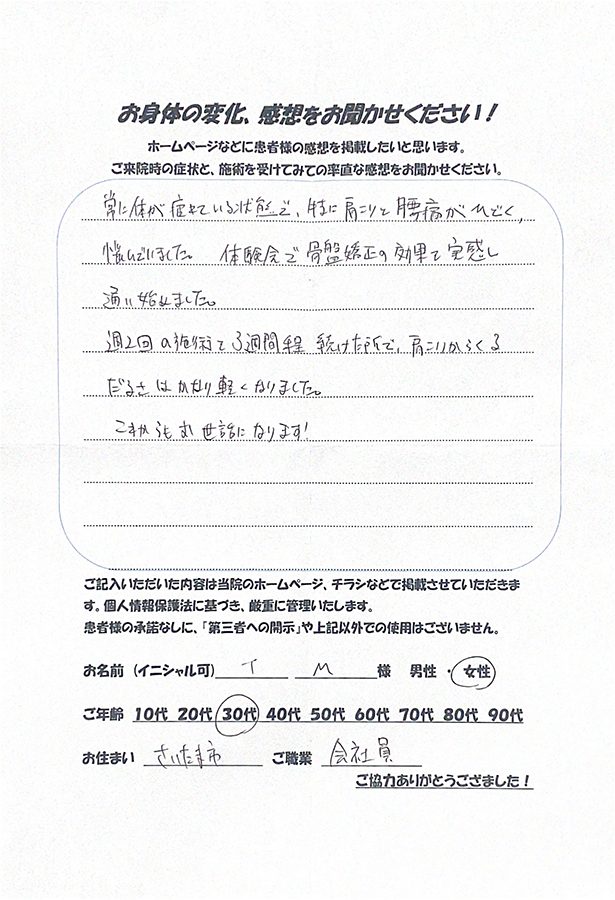 お身体の変化、感想をお聞かせください！
ホームページなどに患者様の感想を掲載したいと思います。
ご来院時の症状と、施術を受けてみての率直な感想をお聞かせください。
常に体が疲れている状態で、特に肩こりと腰痛がひどく、
悩んでいました。 体験会で骨盤矯正の効果を実感し
通い始めました。
週2回の施術を3週間程 続けた所で、肩こりからくる
だるさはかなり軽くなりました。
これからもお世話になります!
ご記入いただいた内容は当院のホームページ、チラシなどで掲載させていただきま
す。個人情報保護法に基づき、厳重に管理いたします。
患者様の承諾なしに、「第三者への開示」や上記以外での使用はございません。
お名前（イニシャル可） T M 様 男性 ・ 女性
ご年齢 10代 20代 30代 40代 50代 60代 70代 80代 90代
お住まい さいたま市 ご職業 会社員
ご協力ありがとうござました！